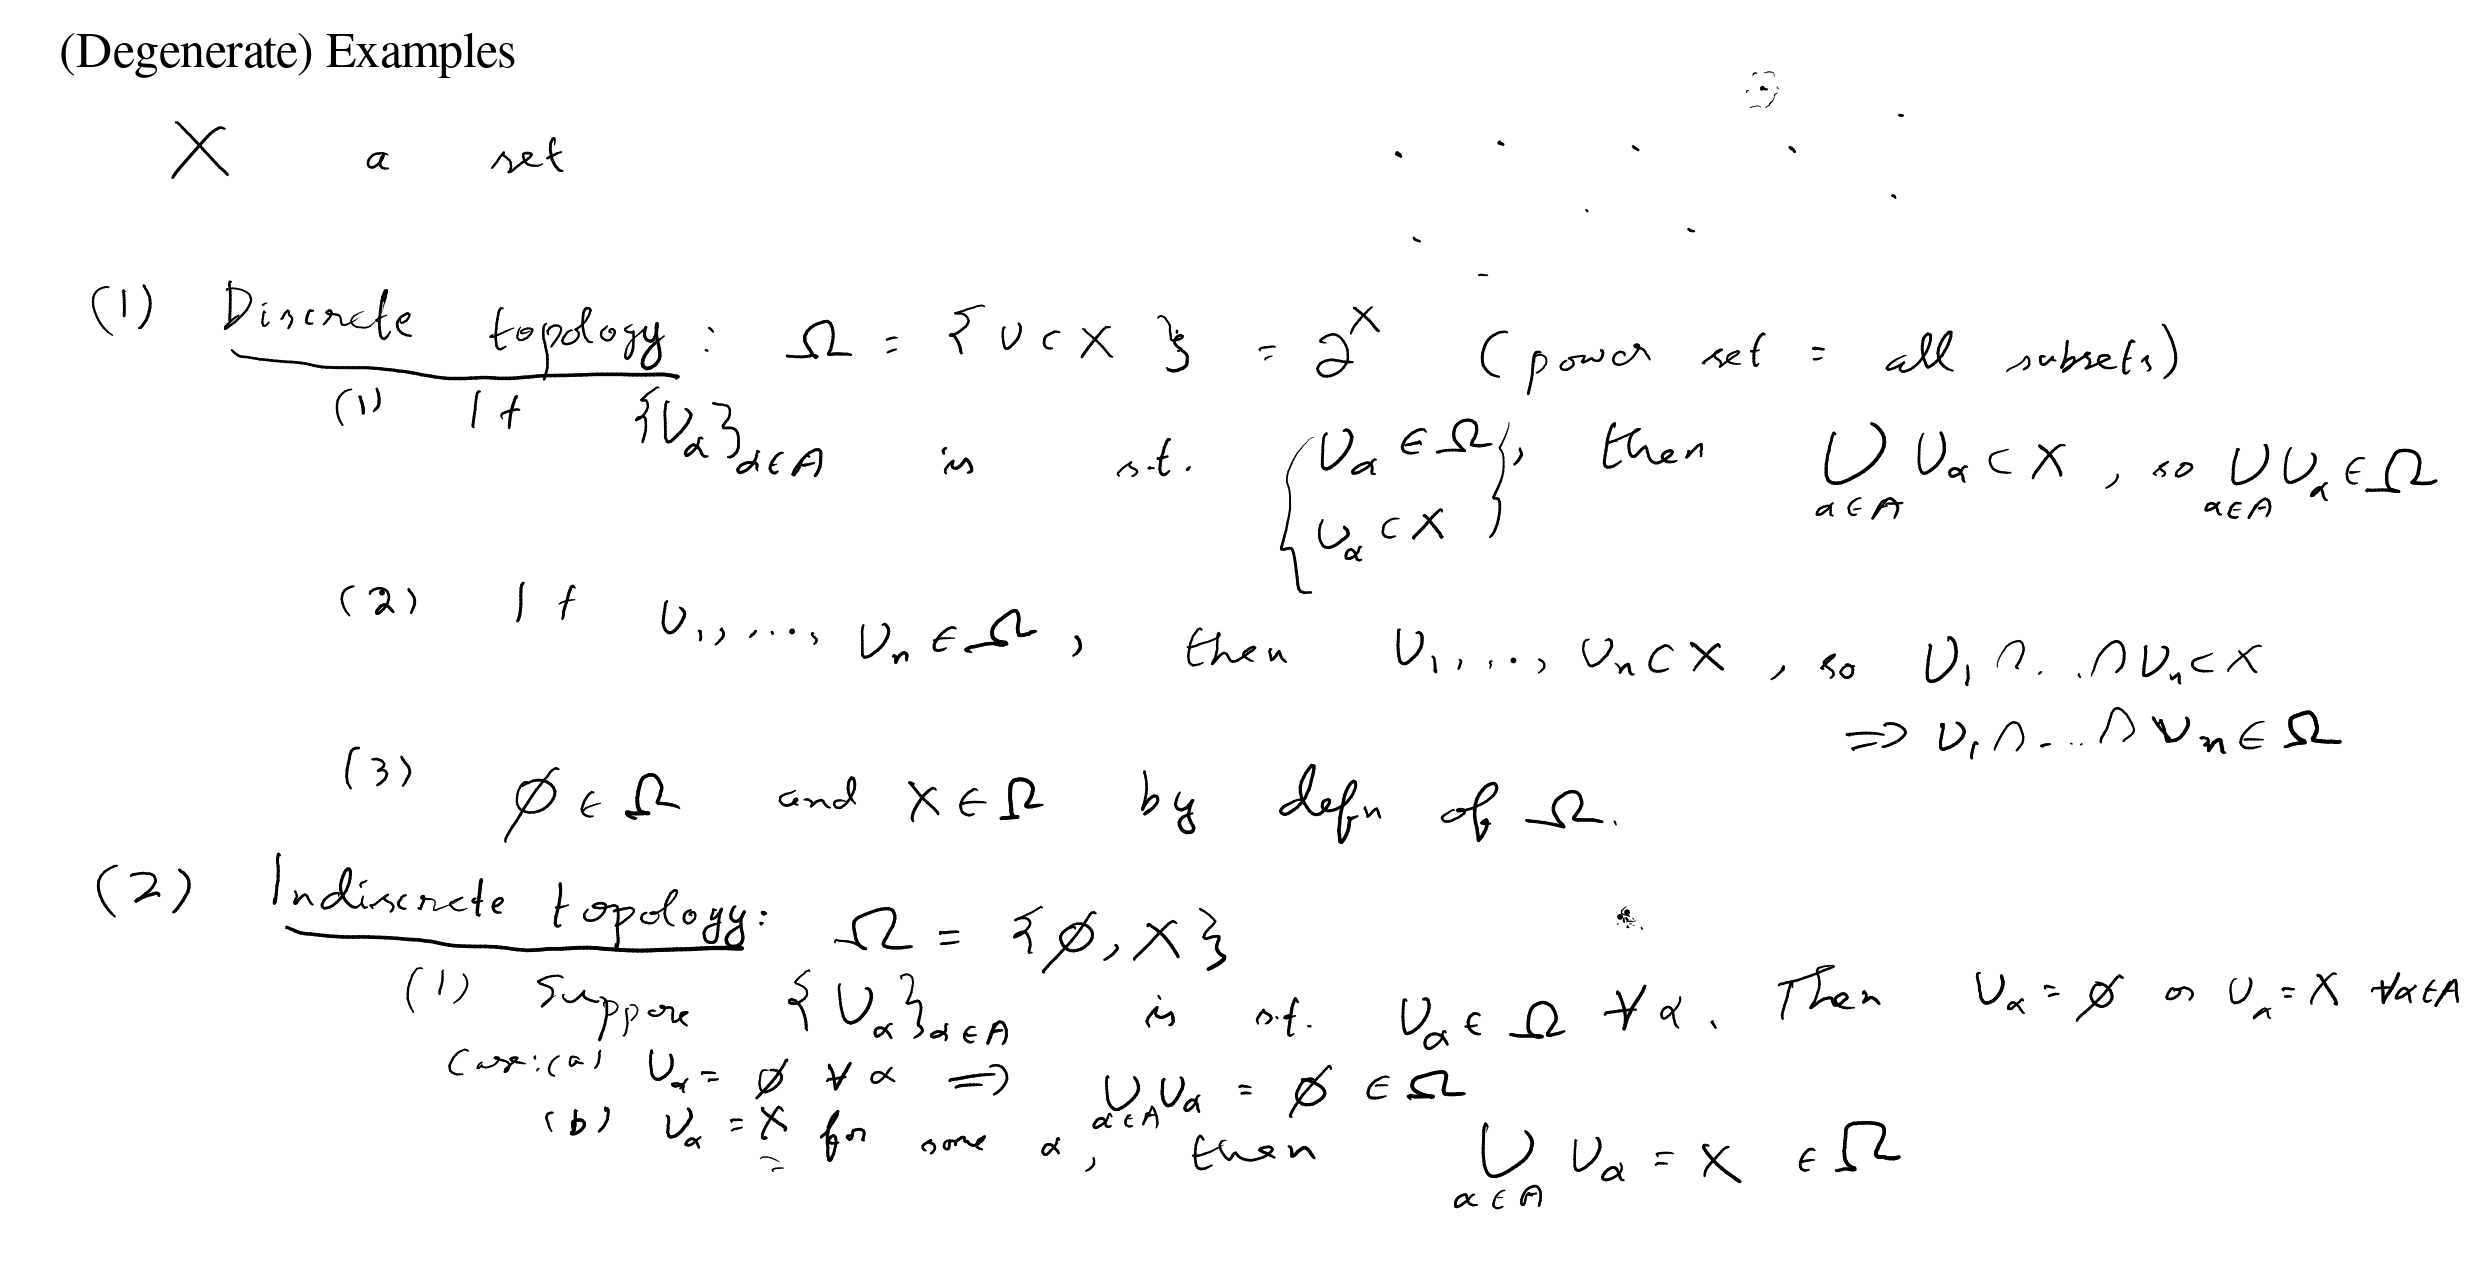 (Degenerate) Examples
X a set
(1) Discrete topology: Ω = {U ⊂ X} = 2^X (power set = all subsets)
(1) If {U_α}_{α∈A} is s.t. {U_α ∈ Ω}, then ⋃_{α∈A} U_α ⊂ X, so ⋃_{α∈A} U_α ∈ Ω
U_α ⊂ X
(2) If U_1, ..., U_n ∈ Ω, then U_1, ..., U_n ⊂ X, so U_1 ∩ .. ∩ U_n ⊂ X
⇒ U_1 ∩ ... ∩ U_n ∈ Ω
(3) ∅ ∈ Ω and X ∈ Ω by defn of Ω.
(2) Indiscrete topology: Ω = {∅, X}
(1) Suppose {U_α}_{α∈A} is s.t. U_α ∈ Ω ∀ α. Then U_α = ∅ or U_α = X ∀α∈A
Case: (a) U_α = ∅ ∀ α ⇒ ⋃_{α∈A} U_α = ∅ ∈ Ω
(b) U_α = X for some α, then ⋃_{α∈A} U_α = X ∈ Ω